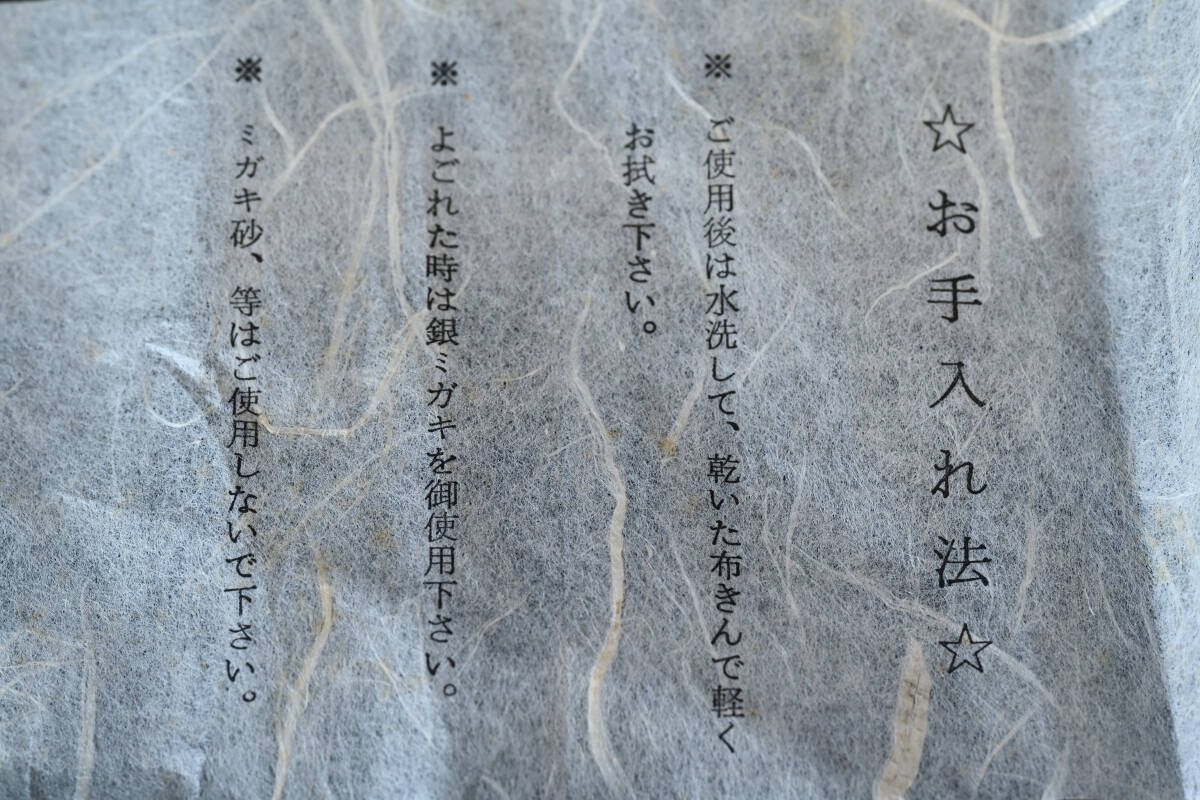 ☆お手入れ法☆
※ ご使用後は水洗して、乾いた布きんで軽く
お拭き下さい。
※ よごれた時は銀ミガキを御使用下さい。
※ ミガキ砂、等はご使用しないで下さい。